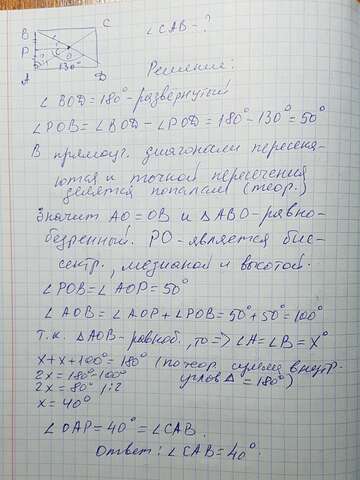 B C
∠CAB = ?
P O
130°
A D
Решение:
∠BOD = 180° - развернутый
∠POB = ∠BOD - ∠POD = 180° - 130° = 50°
В прямоуг. диагонали пересека-
ются и точкой пересечения
делятся попалам (теор.)
Значит AO = OB и ΔABO - равно-
бедренный. PO - является бис-
сектр., медианой и высотой.
∠POB = ∠AOP = 50°
∠AOB = ∠AOP + ∠POB = 50° + 50° = 100°
Т.к. ΔAOB - равноб., то => ∠A = ∠B = X°
X + X + 100° = 180° (по теор. сумма внутр.
углов Δ = 180°)
2x = 180° - 100°
2x = 80° |:2
x = 40°
∠OAP = 40° = ∠CAB.
Ответ: ∠CAB = 40°.